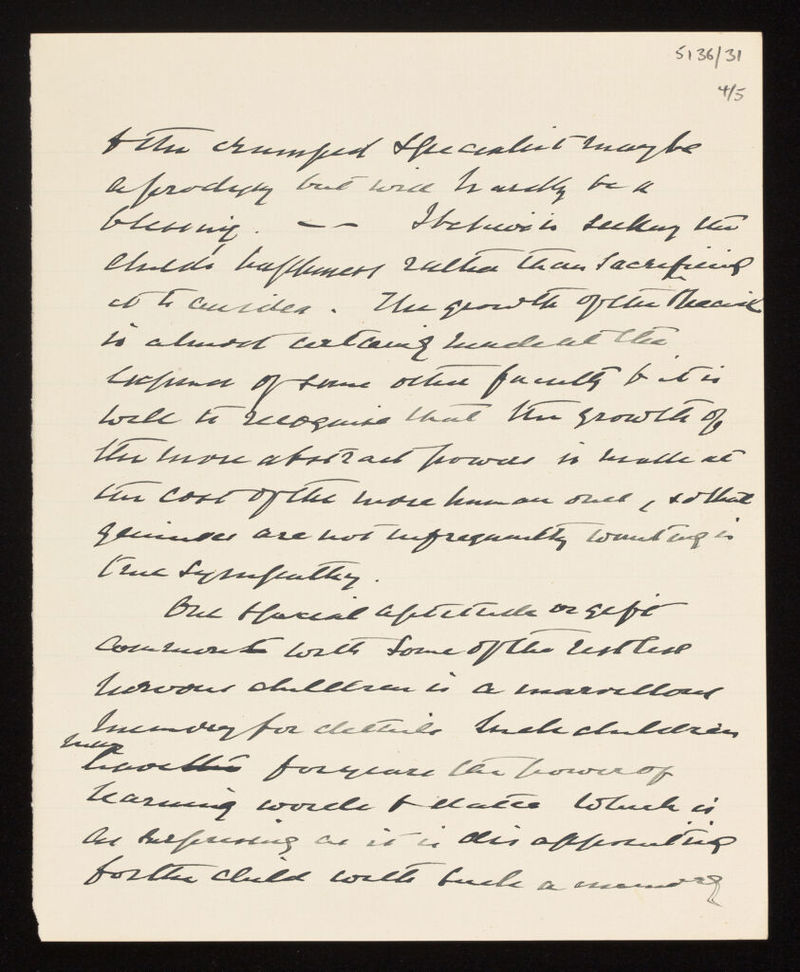 5136/31
4/5
& the crumped specialist may be
a prodigy but will hardly be a
blessing. — — I believe in seeking the
child's happiness rather than sacrificing
it to outsiders. The growth of the special
is almost certainly made at the
expense of some other faculty & it is
well to recognise that the growth of
the more abstract powers is made at
the cost of the more human ones, so that
geniuses are not infrequently wanting in
true sympathy.
One special aptitude or gift
common with some of the restless
nervous children is a marvellous
memory for details. Such children
may
have for years the power of
learning words & dates which is
as surprising as it is disappointing
for the child with such a memory